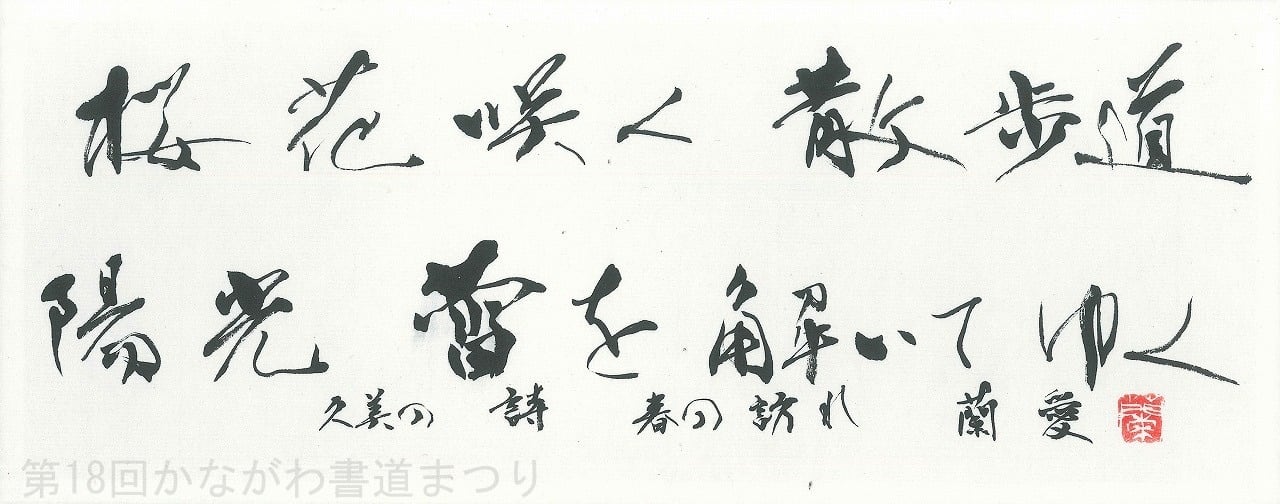 桜花咲く散歩道
陽光蕾を解いてゆく
久美の詩 春の訪れ 蘭愛
第18回かながわ書道まつり